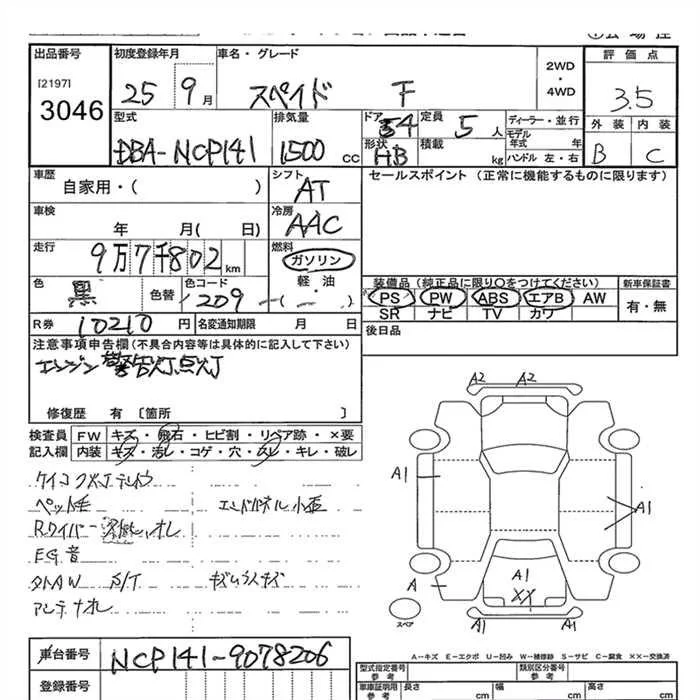 出品番号 初度登録年月 車名・グレード 2WD・4WD 評価点
[2197] 3046 25 9月 スペイド F 3.5
型式 排気量 ドア 定員 ディーラー・並行 外装 内装
DBA-NCP141 1500 CC 54 5人 モデル年式 年 B C
形状 HB 積載 kg ハンドル 左・右
車歴 自家用・( ) シフト AT セールスポイント (正常に機能するものに限ります)
車検 年 月( 日) 冷房 AAC
走行 9万7千802 km 燃料 ガソリン
軽・油
色 黒 色替 色コード 209 ( ・ )
装備品 (純正品に限り○をつけてください) 新車保証書
PS PW ABS エアB AW 有・無
SR ナビ TV カワ
R券 10210 円 名変通知期限 月 日
後日品
注意事項申告欄 (不具合内容等は具体的に記入して下さい)
エンジン警告灯点灯
修復歴 有 [箇所 ]
検査員 FW キズ・飛石・ヒビ割・リペア跡・×要
記入欄 内装 キズ・汚レ・コゲ・穴・スレ・キレ・破レ
ペット毛
Rワイパー
EG音
S/T
アンテナオレ
A2 A2
A1 A1
A A1 XX
A1 A1
スペア
A-キズ E-エクボ U-凹み W-補修跡 S-サビ C-腐食 XX-交換済
車台番号 NCP141-9078206
登録番号
型式指定番号 参考 類別区分番号 参考
車庫証明用 参考 長さ cm 幅 cm 高さ cm